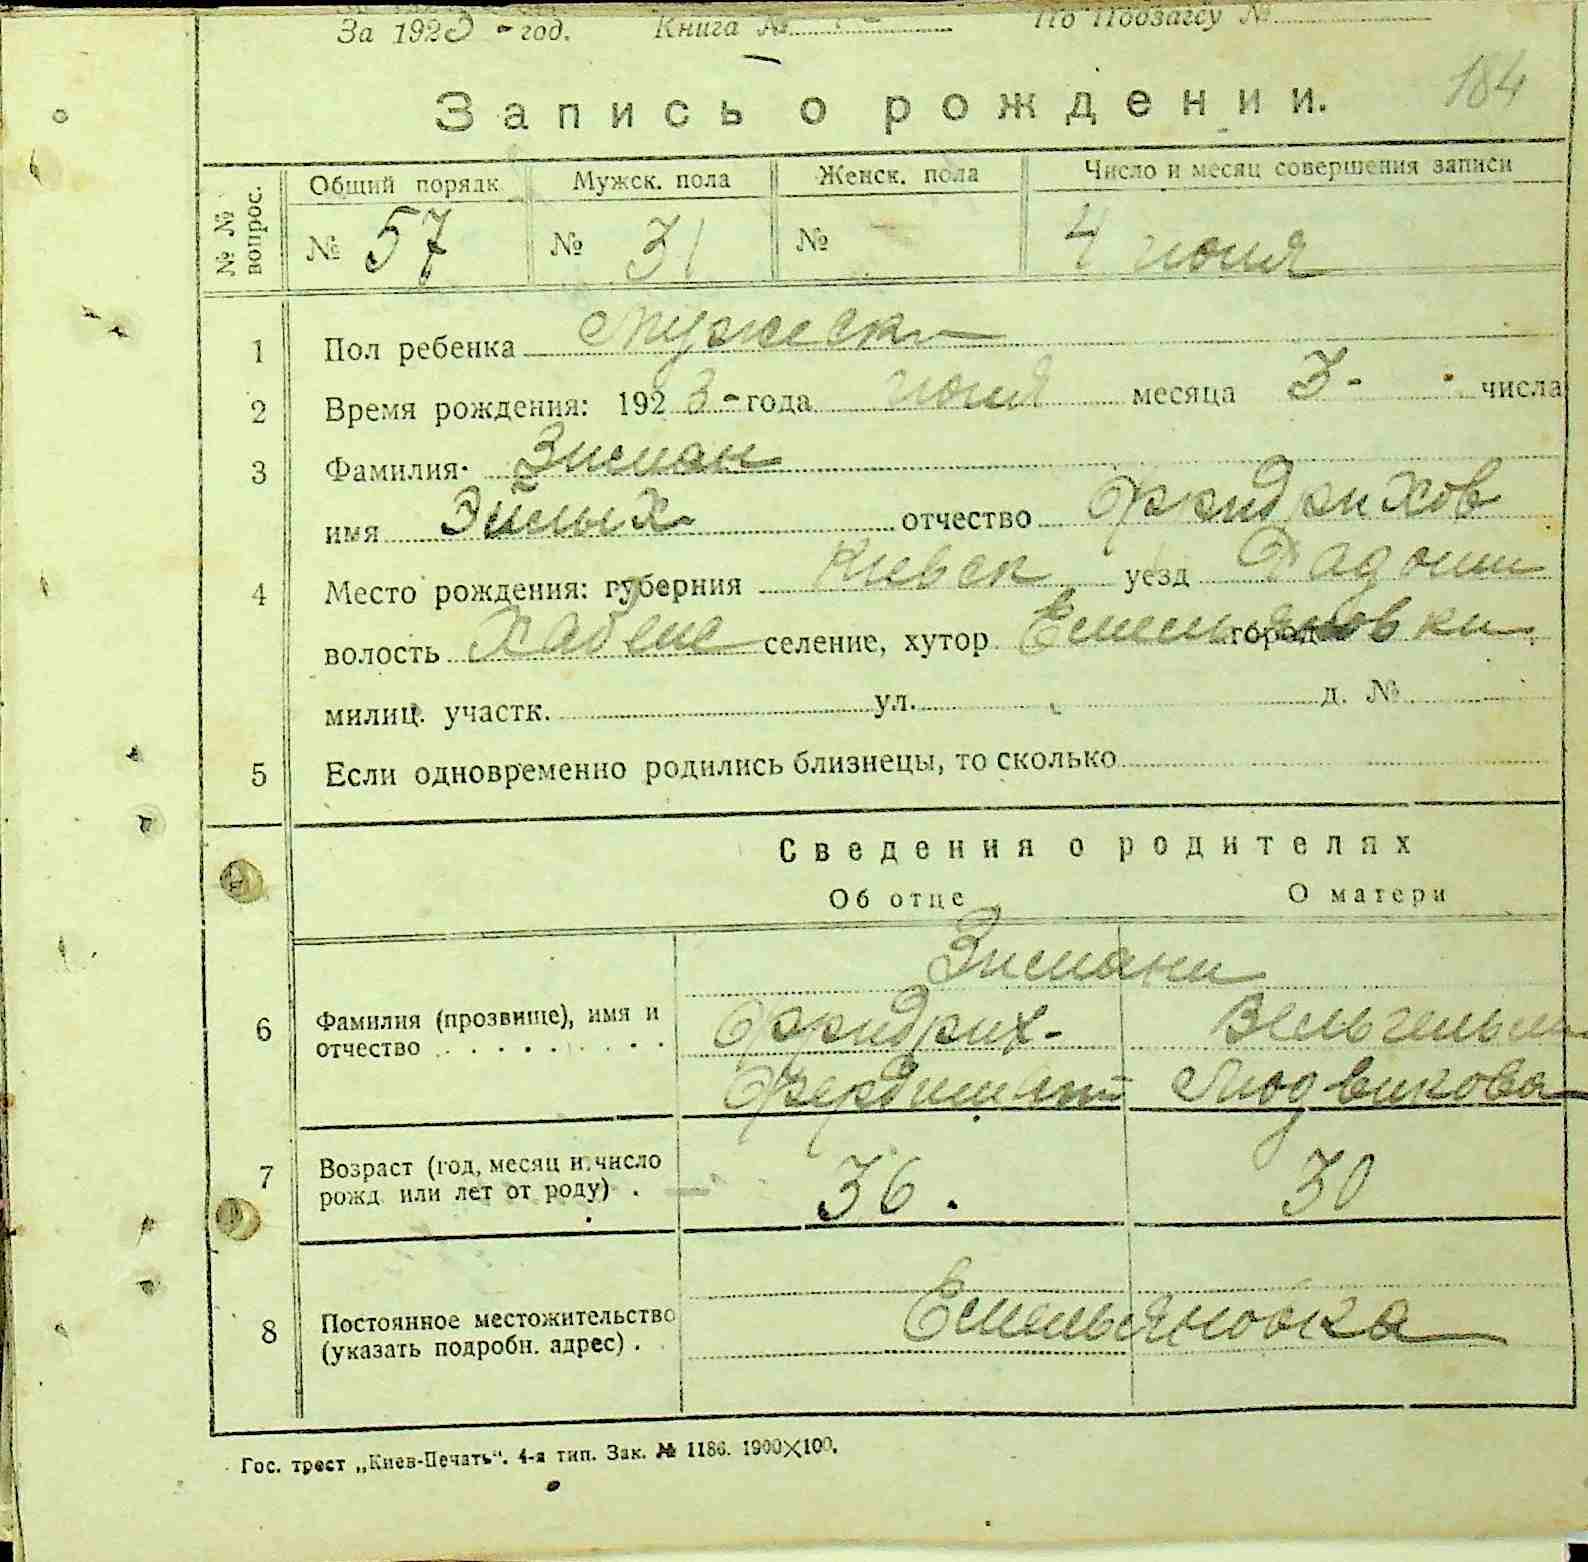 За 1923 - год. Книга № По Подзагсу №
184
Запись о рождении.
№ № вопрос.
Общий порядк. Мужск. пола Женск. пола Число и месяц совершения записи
№ 57 № 31 № 4 июня
1 Пол ребенка Мужеск
2 Время рождения: 1923 - года июня месяца 3 - числа
3 Фамилия Зисман
имя отчество Фридрихов
4 Место рождения: губерния Киевск уезд Радоми
волость Хабене селение, хутор Емельяновки город
милиц. участк. ул. д. №
5 Если одновременно родились близнецы, то сколько
Сведения о родителях
Об отце О матери
Зисмани
6 Фамилия (прозвище), имя и отчество Фридрих- Вельгельм
Фердинант Людвикова
7 Возраст (год, месяц и число рожд или лет от роду) . 36. 30
8 Постоянное местожительство (указать подробн. адрес) . Емельяновка
Гос. трест „Киев-Печать“. 4-я тип. Зак. № 1186. 1900X100.